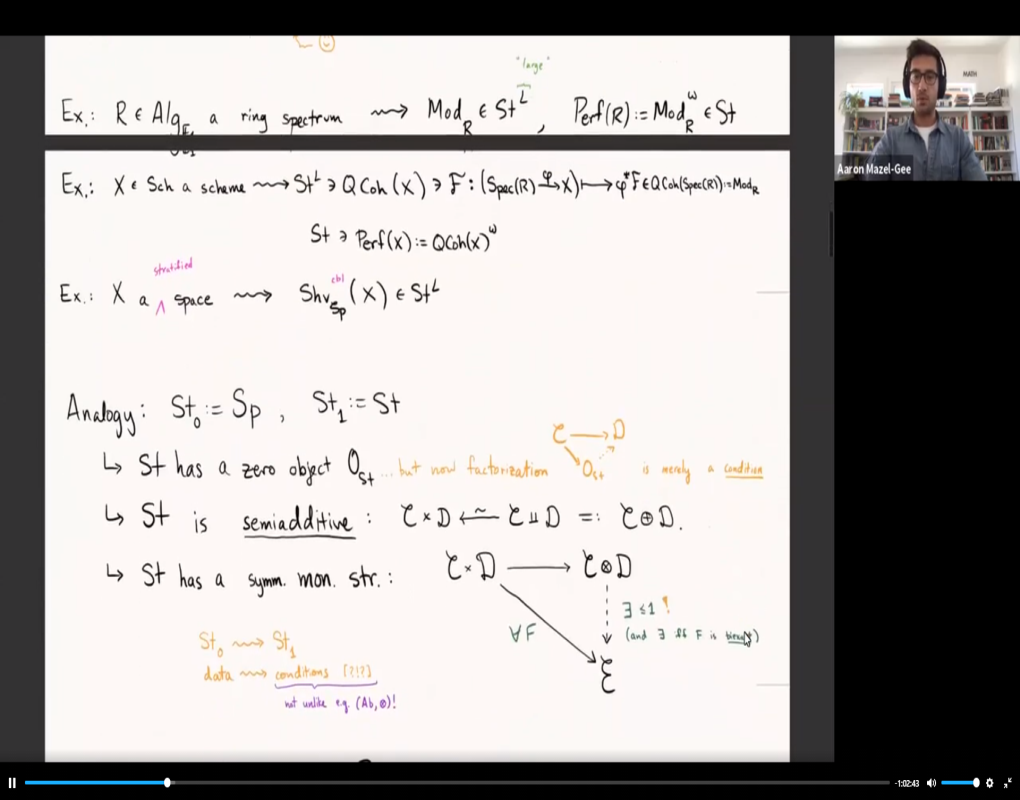 "large"
Ex.: R ∈ Alg_{E_1} a ring spectrum ⇝ Mod_R ∈ St^L, Perf(R) := Mod_R^ω ∈ St
Ex.: X ∈ Sch a scheme ⇝ St^L ∋ QCoh(X) ∋ F : (Spec(R) →^φ X) ↦ φ*F ∈ QCoh(Spec(R)) := Mod_R
St ∋ Perf(X) := QCoh(X)^ω
stratified
cbl
Ex.: X a ∧ space ⇝ Shv_{Sp}(X) ∈ St^L
Analogy: St_0 := Sp, St_1 := St
C → D
↳ St has a zero object 0_{St} ... but now factorization 0_{St} is merely a condition
↳ St is semiadditive: C × D ←~ C ⊔ D =: C ⊕ D.
↳ St has a symm. mon. str.: C × D → C ⊗ D
∀F
∃ ≤ 1 !
(and ∃ iff F is
E
St_0 ⇝ St_1
data ⇝ conditions [?!?]
not unlike e.g. (Ab, ⊗)!
MATH
Aaron Mazel-Gee
-1:02:43